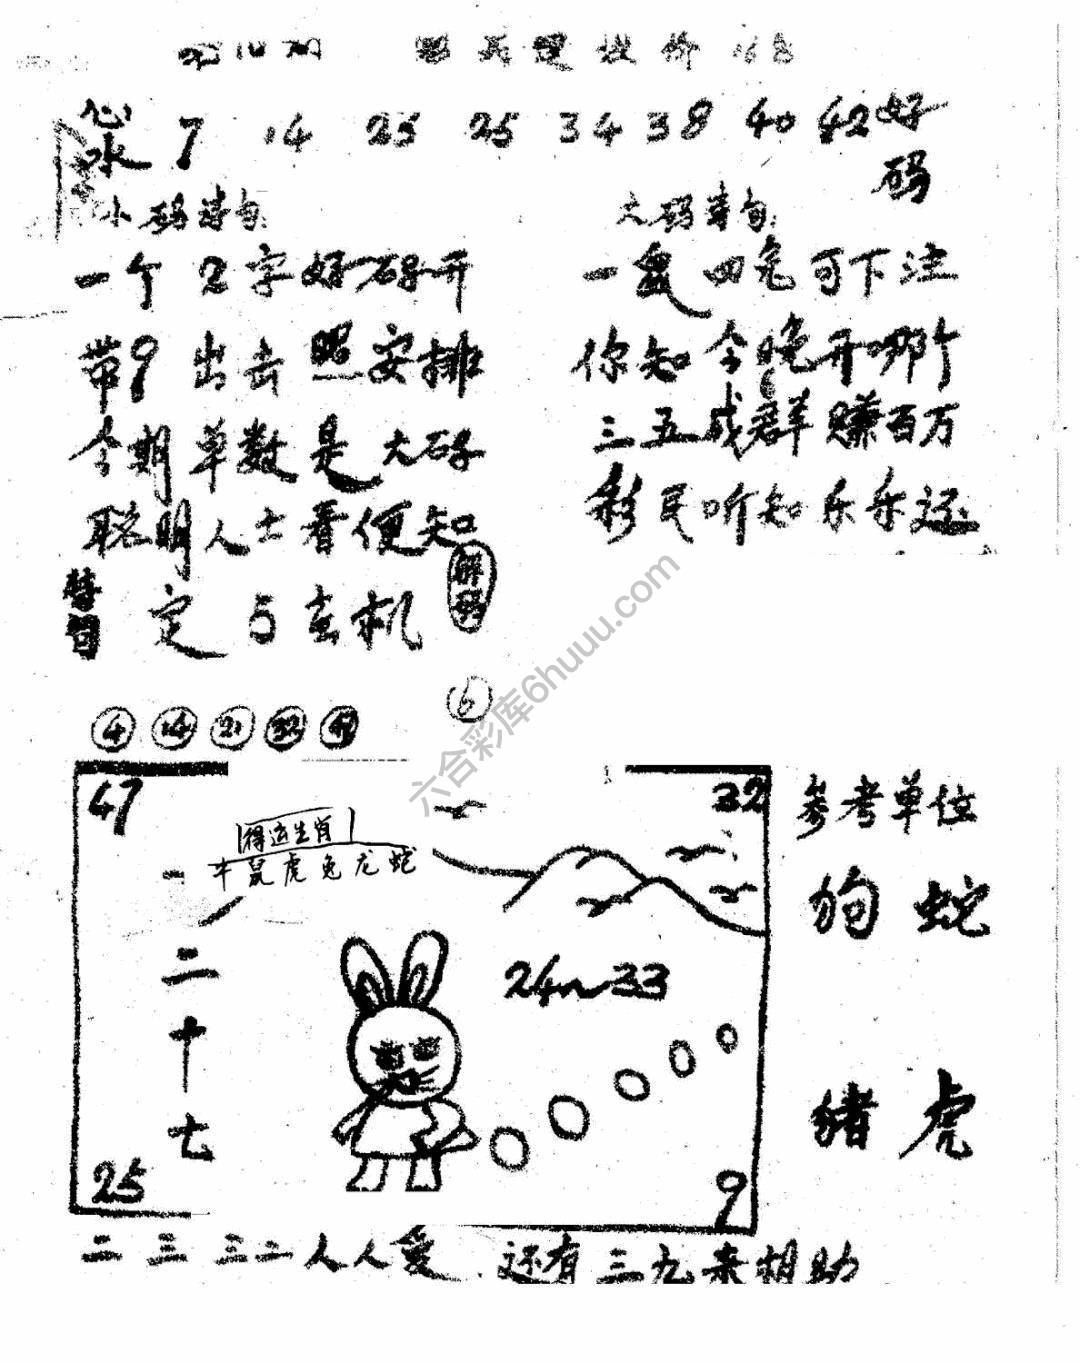 心水 7 14 25 25 34 38 40 42 好码
小码诗句: 大码诗句:
一个2字好码开
带9出击照安排
今期单数是大码
聪明人士看便知
一盘四兔可下注
你知今晚开哪个
三五成群赚百万
彩民听知乐乐还
定与玄机
解码
4 14 21 32
6
47 32
得运生肖
牛鼠虎兔龙蛇
一二十七
24~33
25 9
参考单位
狗 蛇
豬 虎
二三三二人人爱 还有三九来相助
六合彩库6huuu.com